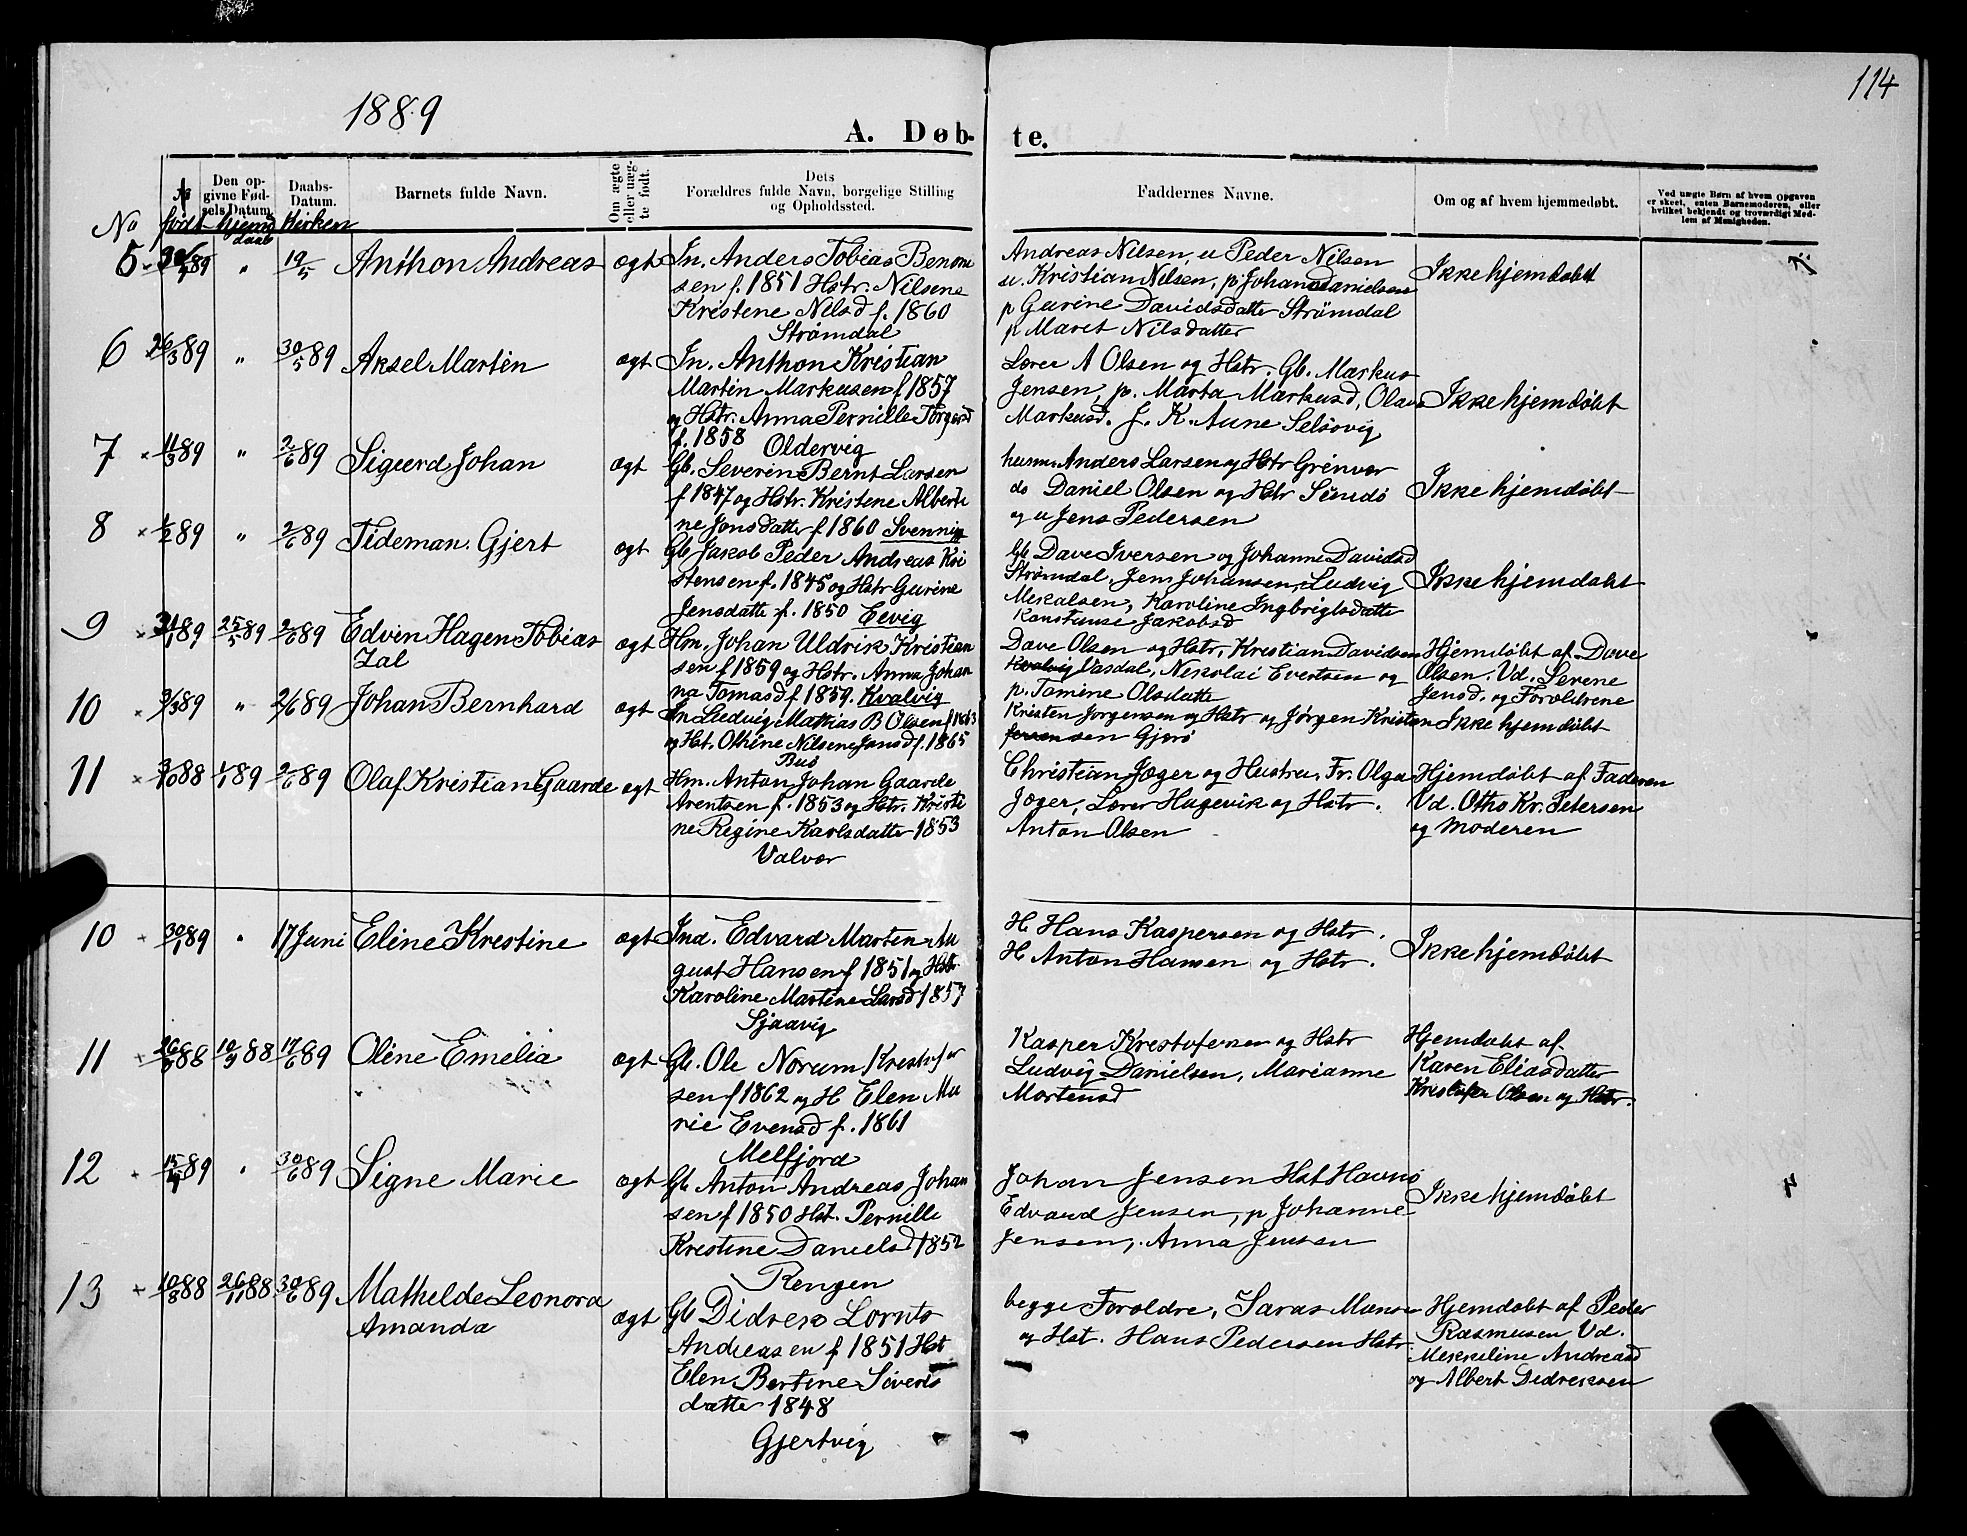 114
1889
A. Døb- te.
No
født
Den opgivne Fødselsdatum.
hjemdaab
Daabs-Datum.
Kirken
Barnets fulde Navn.
Om ægte eller uægte født.
Dets Forældres fulde Navn, borgelige Stilling og Opholdssted.
Faddernes Navne.
Om og af hvem hjemmedøbt.
Ved uægte Børn af hvem Opgaven er skeet, enten Barnemoderen, eller hvilket bekjendt og troværdigt Medlem af Menigheden.
5 89 " 19/5 Anthon Andreas ægt
In. Anders Tobias Benoni
sen f. 1851 Hstr. Nilsene
Kristene Nilsd f. 1860
Strømdal
Andreas Nilsen, u Peder Nilsen
u. Kristian Nilsen, p. Johan Danielsen
p Gurine Davidsdatter Strømdal
p Maret Nilsdatter
Ikke hjemdøbt
6 26/3 89 " 30/5 89 Aksel Martin ægt
In. Anthon Kristian
Martin Markusen f 1857
og Hstr. Anna Pernille Torgersd
f. 1858 Oldervig
Lærer A Olsen og Hstr. Gb. Markus
Jensen, p. Marta Markusd, Olava
Markusd. J. K. Aune Selsøvig
Ikke hjemdøbt
7 × 11/3 89 " 2/6 89 Sigurd Johan ægt
Gb. Severin Bernt Larsen
f 1847 og Hstr. Kristene Alberti
ne Jonsdatter f. 1860 Svenning
husm. Anders Larsen og Hstr Grønvær
do Daniel Olsen og Hstr Sundø
og u Jens Pedersen
Ikke hjemdøbt
8 × 1/2 89 " 2/6 89 Tideman. Gjert ægt
Gb Jakob Peder Andreas Kri
stensen f. 1845 og Hstr Gurine
Jensdatter f. 1850 Eevig
Gb Dave Iversen og Johanne Davidsd
Strømdal, Jens Johansen, Ludvig
Mekalsen, Karoline Ingbrigtsdatter
Konstanse Jakobsd
Ikke hjemdøbt
9 × 31/1 89 25/5 89 2/6 89 Edvin Hagen Tobias
Zal
ægt
Hm. Johan Uldrik Kristian
sen f 1859 og Hstr. Anna Johan
na Tomasd f. 1859. Kvalvig
Dave Olsen og Hstr, Kristian Davidsen
Kvalvig Vasdal, Nekolai Evertsen og
p. Tomine Olsdatter
Hjemdøbt af Dave
Olsen. Vd. Serene
Jensd. og Forældrene
10 × 9/3 89 " 2/6 89 Johan Bernhard ægt
In Ludvig Mathias B Olsen f 1863
og Hst. Othine Nilsene Jonsd f. 1865
Bus
Kristen Jørgensen og Hstr og Jørgen Kristen
sen Gjerø
Ikke hjemdøbt
11 × 3/10 88 1/1 89 2/6 89 Olaf Kristian Gaarde ægt
Hm. Anton Johan Gaarde
Arentsen f. 1853 og Hstr. Kristi
ne Regine Karlsdatter 1853
Valvær
Christian Jæger og Hustru, Fr. Olga
Jæger, Lærer Hagevik og Hstr.
Anton Olsen
Hjemdøbt af Faderen
Vd. Otho Kr. Petersen
og Moderen
10 30/1 89 " 17 Juni Eline Krestine ægt
Ind. Edvard Marten Au
gust Hansen f 1851 og Hstr
Karoline Martine Larsd 1857
Sjaavig
H Hans Kaspersen og Hstr.
H Anton Hansen og Hstr.
Ikke hjemdøbt
11 88 10/9 88 17/6 89 Oline Emelia ægt
Gb. Ole Norum Krestofer
sen f 1862 og H Elen Ma
rie Evensd f. 1861
Melfjord
Kasper Krestofersen og Hstr
Ludvig Danielsen, Marianne
Mortensd
Hjemdøbt af
Karen Eliasdatter
Krestofer Olsen og Hstr.
12 89 " 30/6 89 Signe Marie ægt
Gb Anton Andreas Johan
sen f 1850 Hst. Pernille
Krestine Danielsd 1852
Rengen
Johan Jensen Hst Havnø
Edvard Jensen, p Johanne
Jensen, Anna Jensen
Ikke hjemdøbt
13 10/8 88 26/11 88 30/6 89 Mathelde Leonora
Amanda
ægt
Gb Didrek Lornts
Andreasen f 1851 Hst
Elen Bertine Siverts
datter 1848
Gjertvig
begge Forældre, Saras Monse
og Hst. Hans Pedersen Hstr
Hjemdøbt af Peder
Rasmusen Vd.
Mekkeline Andreasd
og Albert Dedreksen